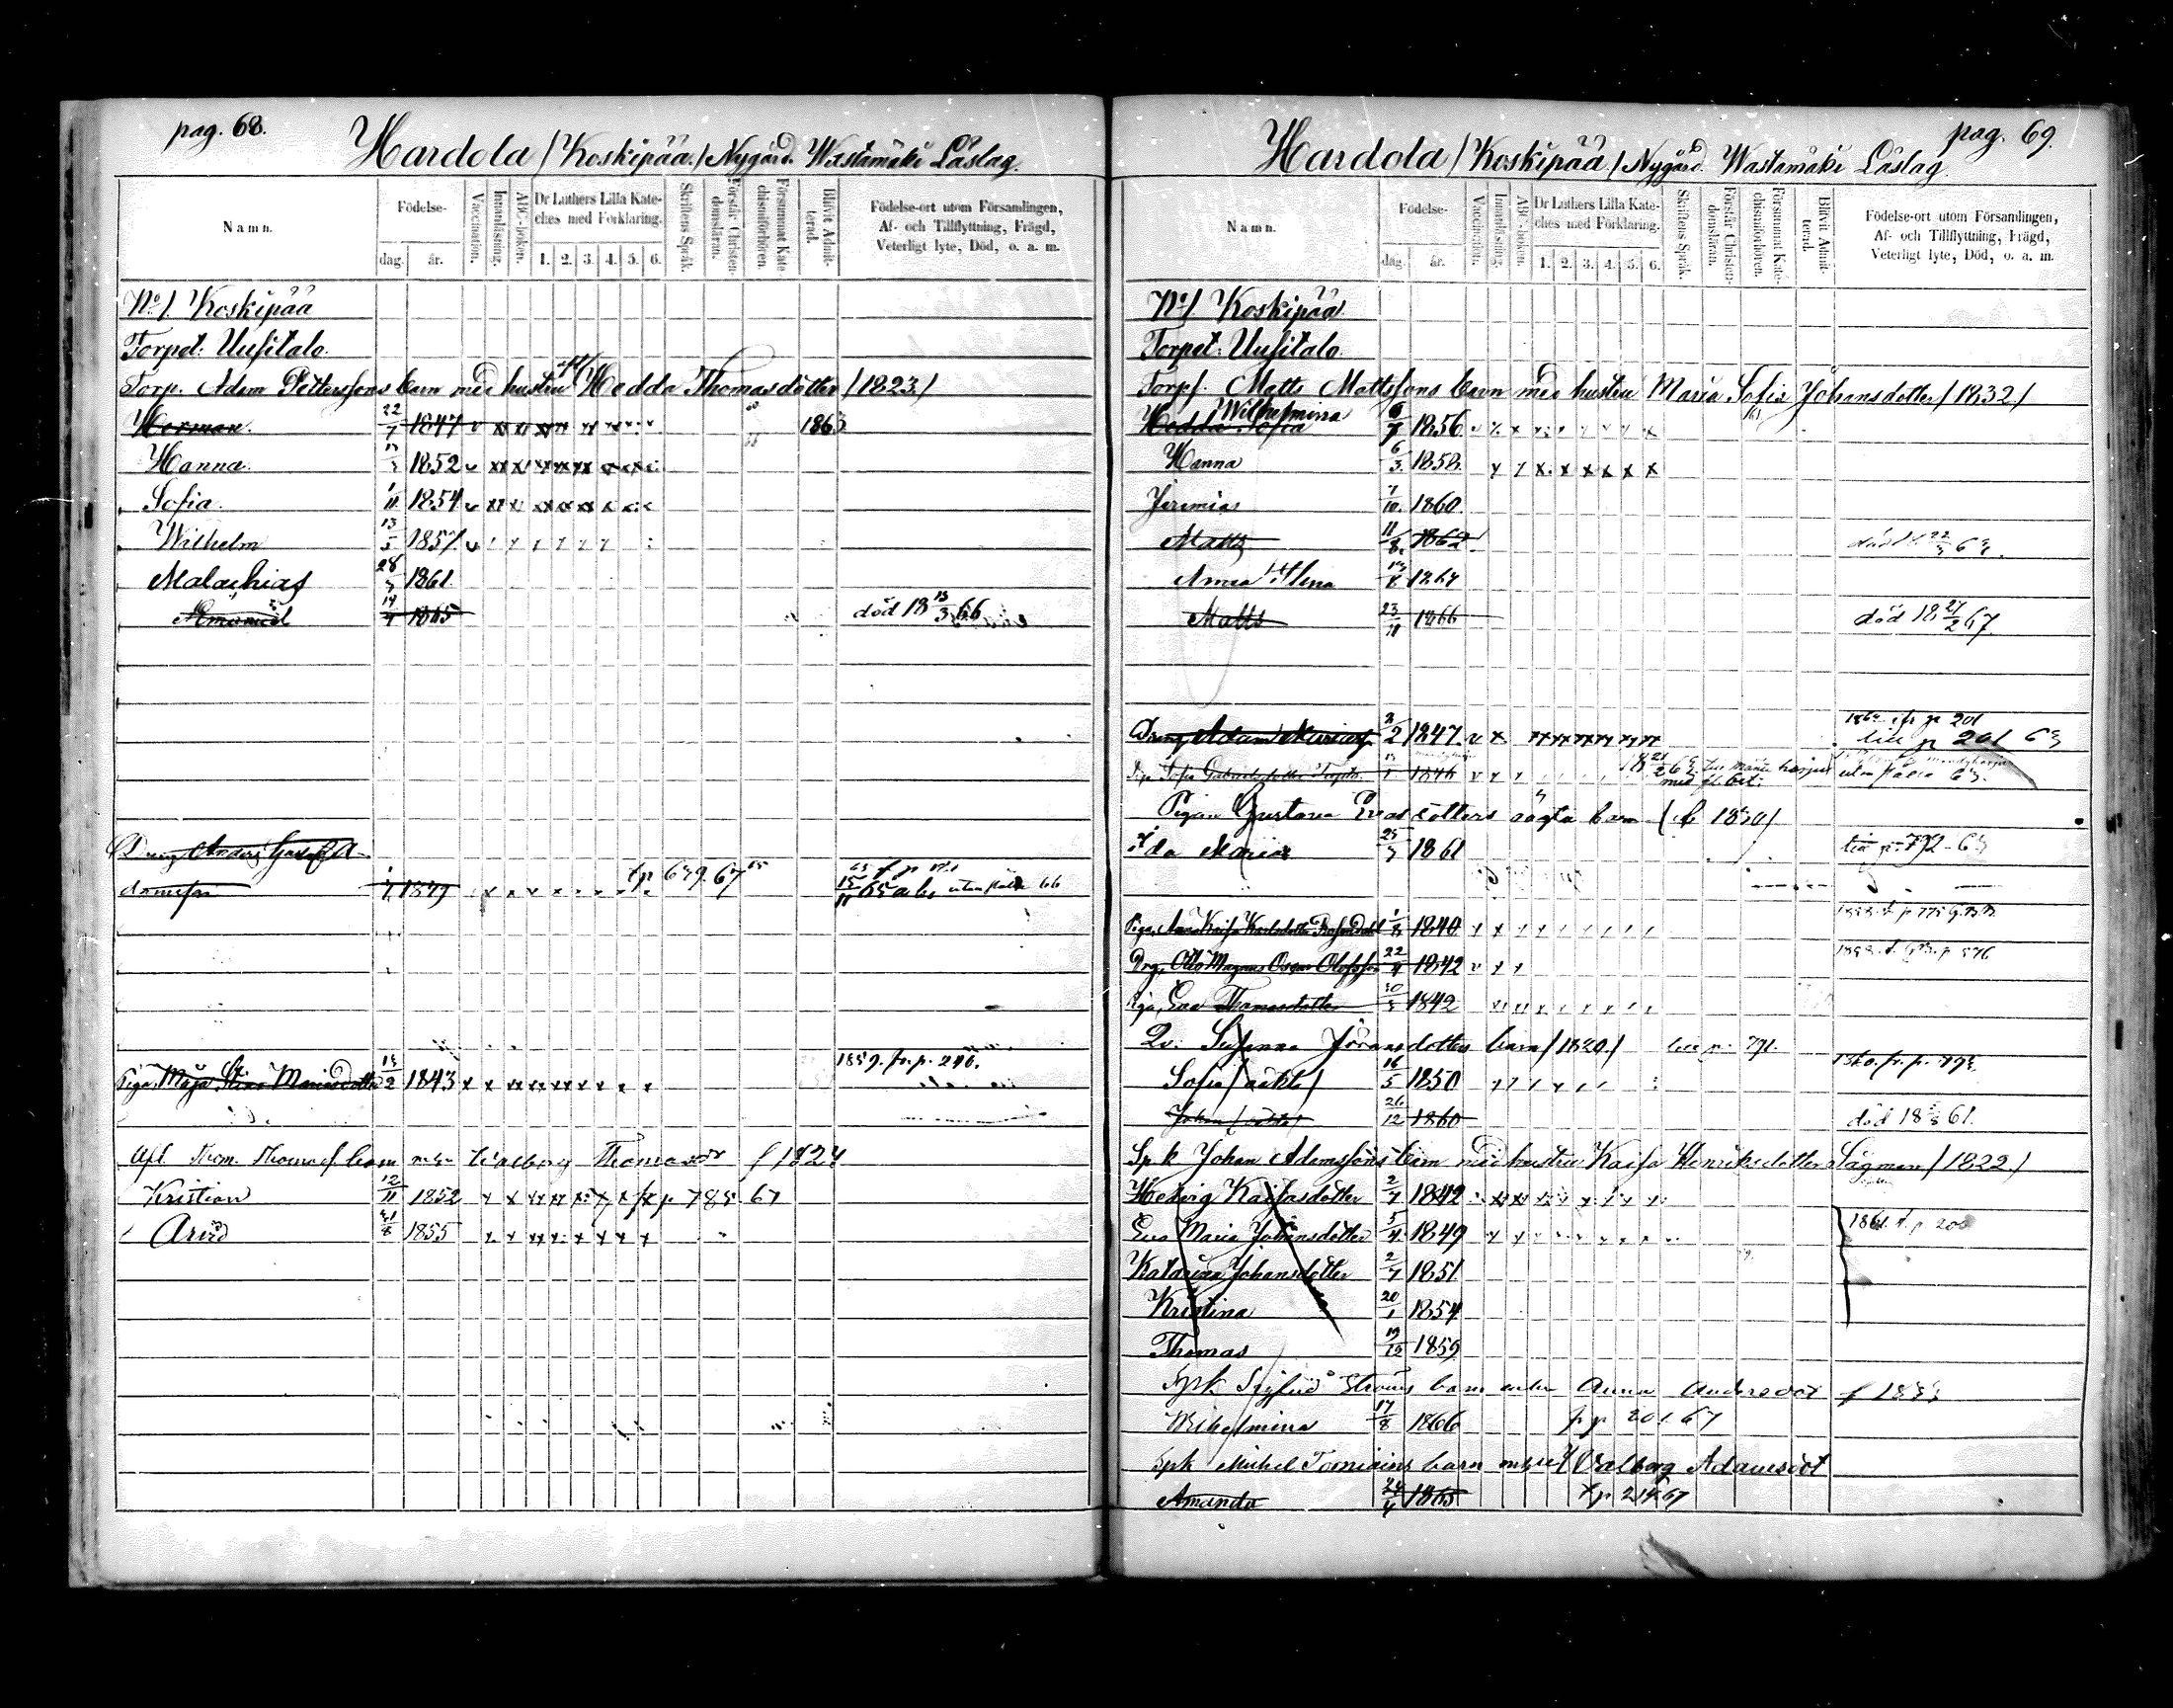 pag. 68.
Hardola / Koskipää. / Nygård. Wästämäki Läslag.
Namn.
Födelse-
dag. år.
Vaccination.
Innanläsning.
ABC-boken.
Dr Luthers Lilla Kate-
ches med Förklaring.
1. 2. 3. 4. 5. 6.
Skriftens Språk.
Förstår Christen-
domsläran.
Försummat Kate-
chismiförhören.
Blifvit Admit-
terad.
Födelse-ort utom Församlingen,
Af- och Tillflyttning, Frägd,
Veterligt lyte, Död, o. a. m.
No 1. Koskipää
Torpet: Uusitalo.
Torp. Adam Petterssons barn med hustru Hedda Thomasdotter / 1823 /
Herman. 22/7 1847 1863
Hanna. 1852
Sofia. 1/11 1854
Wilhelm 13/5 1857
Malachias 28 1861.
Emanuel 14/4 1865 död 18 13/3 66
Dreng Anders Gustaf A-
damsson 1849 tp 679. 67 15/11 65 abs utan 66
Piga, Maja Stina Mariasdotter 15/2 1843 1859. fr. p. 246.
Afl. Thom. Thomass. barn Walborg Thomasdr f 1824
Kristian 12/11 1852 p 785 67
Arvid 31/8 1855
pag. 69.
Hardola / Koskipää / Nygård. Wästämäki Läslag.
Namn.
Födelse-
dag. år.
Vaccination.
Innanläsning.
ABC-boken.
Dr Luthers Lilla Kate-
ches med Förklaring.
1. 2. 3. 4. 5. 6.
Skriftens Språk.
Förstår Christen-
domsläran.
Försummat Kate-
chismiförhören.
Blifvit Admit-
terad.
Födelse-ort utom Församlingen,
Af- och Tillflyttning, Frägd,
Veterligt lyte, Död, o. a. m.
No 1 Koskipää.
Torpet: Uusitalo.
Torp. Matts Mattssons barn med hustru Maria Sofia Johansdotter / 1832 /
Wilhelmina
Hedda Sofia 6/7 1856
Hanna 6/3 1858.
Jeremias 7/10 1860
Matts 11/8 1862 död
Anna Helena 1864
Matts 23/11 1866 död 18 27/2 67.
Dreng Adam 2/2 1847. fr p 201
till p 201
Sofia 1846
med fl. bet.
Pigan Gustava Evasdotters oägta barn
Ida Maria 25 1861 till p. 792
Piga, Anna Kaisa Karlsdotter 1840
Drg, Otto Magnus Oscar Olofsson 22/4 1842
Piga, Eva Thomasdotter 1842
Qv. Susanna Jöransdotters barn / 1820 / till p. 791.
Sofia / oäkta / 16/5 1850 1860. fr. p.
Johan / oäkta / 26/12 1860 död 18 61.
Spk Johan Adamssons barn med hustru Kaisa Henriksdotter Sågman / 1822 /
Hedvig Kaisasdotter 2/7 1842
Eva Maria Johansdotter 5/4 1849 1861. f. p 200
Katarina Johansdotter 2/7 1851
Kristina 20/1 1854
Thomas 1859
Spk. Sigfrid barn Anna Andersdot
Wilhelmina 17/8 1866 p p 201. 67
Spk Mickel Tomiains barn Valborg Adamsdot
Amanda 1865 tp 214. 67